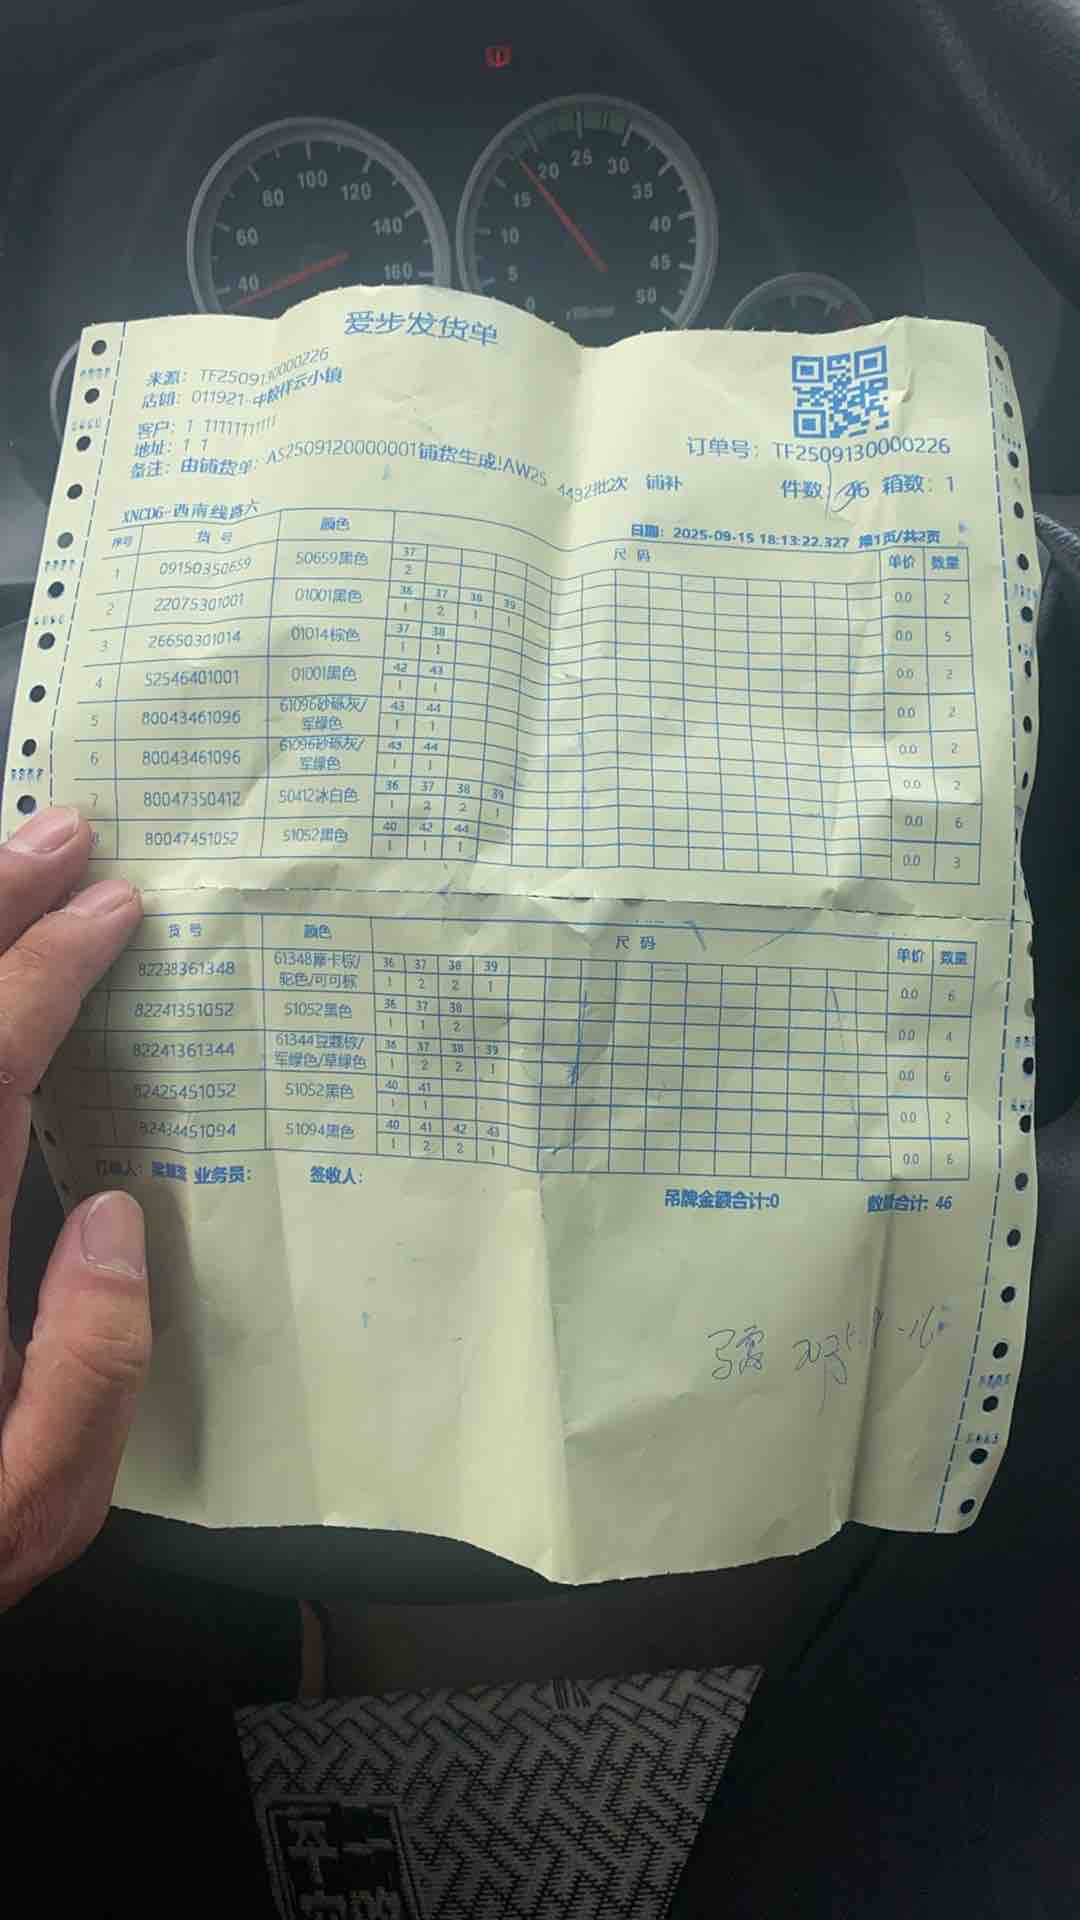 80 100 120
60 140
40 160
15 20 25 30 35
10 40
5 45
0 50
爱步发货单
来源: TF2509130000226
店铺: 011921-中粮祥云小镇
客户: 1 1111111111
地址: 1 1
备注: 由铺货单: AS2509120000001铺货生成!AW25 4492批2次 铺补
订单号: TF2509130000226
件数: 46 箱数: 1
XNCD6-西南线路六
日期: 2025-09-15 18:13:22.327 第1页/共2页
序号 货号 颜色 尺码 单价 数量
1 09150350659 50659黑色 37 0.0 2
2
2 22075301001 01001黑色 36 37 38 39 0.0 5
1 2 1 1
3 26650301014 01014棕色 37 38 0.0 2
1 1
4 52546401001 01001黑色 42 43 0.0 2
1 1
5 80043461096 61096砂砾灰/军绿色 43 44 0.0 2
1 1
6 80043461096 61096砂砾灰/军绿色 43 44 0.0 2
1 1
7 80047350412 50412冰白色 36 37 38 39 0.0 6
1 2 2 1
8 80047451052 51052黑色 40 42 44 0.0 3
1 1 1
货号 颜色 尺码 单价 数量
82238361348 61348摩卡棕/驼色/可可棕 36 37 38 39 0.0 6
1 2 2 1
82241351052 51052黑色 36 37 38 0.0 4
1 1 2
82241361344 61344豆蔻棕/军绿色/草绿色 36 37 38 39 0.0 6
1 2 2 1
82425451052 51052黑色 40 41 0.0 2
1 1
82434451094 51094黑色 40 41 42 43 0.0 6
1 2 2 1
订单人: 业务员: 签收人:
吊牌金额合计:0 数量合计: 46